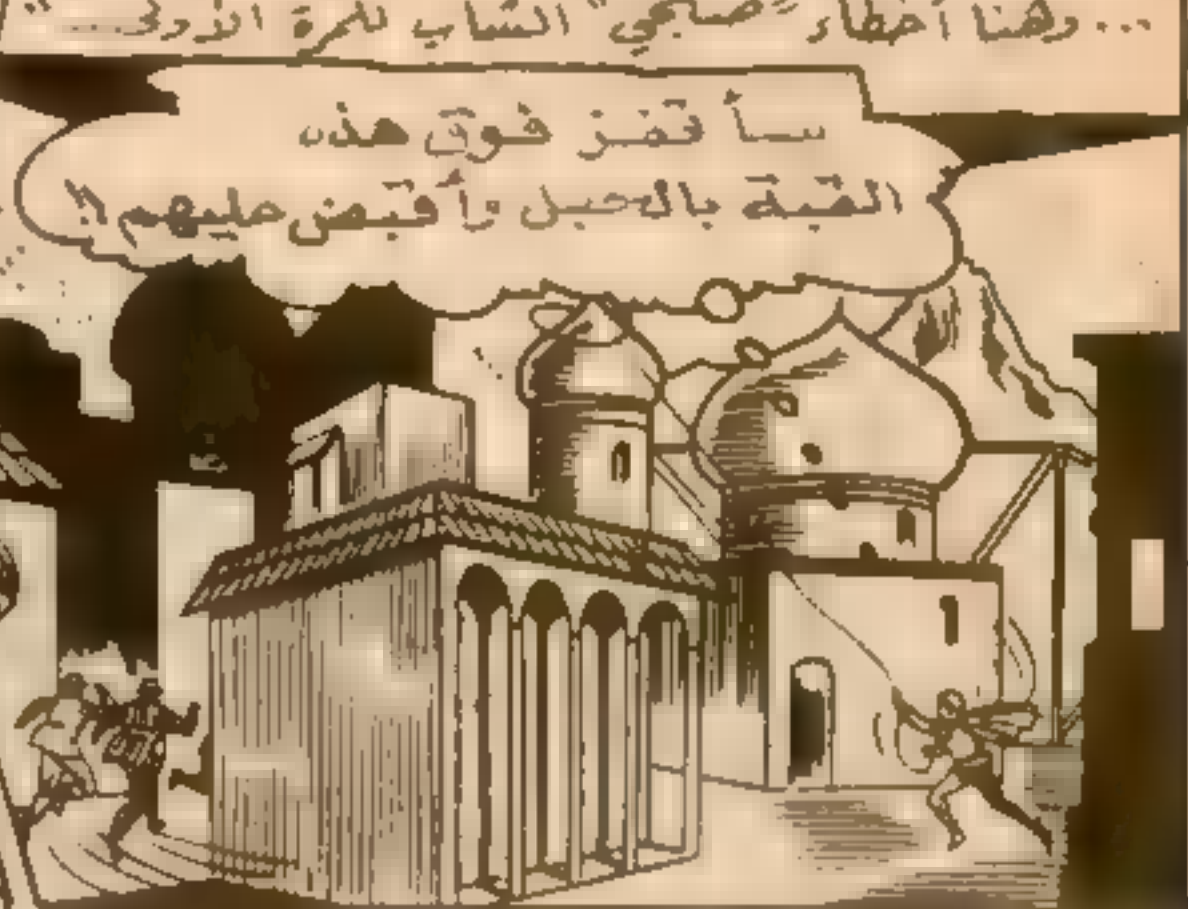 ...وهنا أخطاء "صبحي" الشاب للمرة الأولى..."
سأ قفز فوق هذه
القبة بالحبل وأقبض عليهم!!